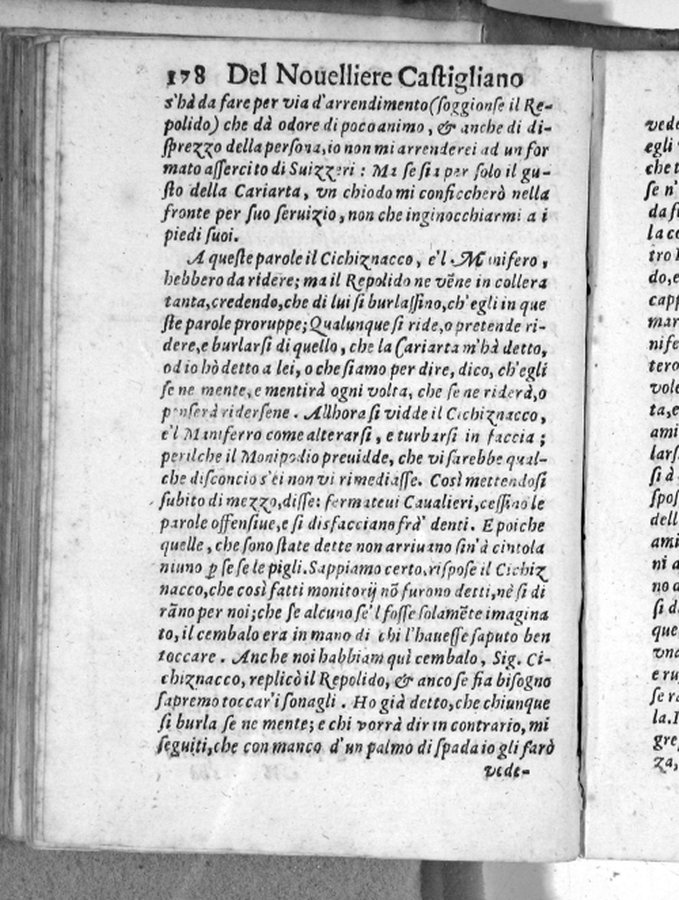 178 Del Nouelliere Castigliano
s'hà da fare per via d'arrendimento (soggionse il Re-
polido) che dà odore di poco animo, & anche di di-
sprezzo della persona, io non mi arrenderei ad un for
mato assercito di Suizzeri: Ma se sia per solo il gu-
sto della Cariarta, vn chiodo mi conficcherò nella
fronte per suo seruizio, non che inginocchiarmi a i
piedi suoi.
A queste parole il Cichiznacco, e'l Manifero,
hebbero da ridere; ma il Repolido ne vēne in collera
tanta, credendo, che di lui si burlassino, ch'egli in que
ste parole proruppe; Qualunque si ride, o pretende ri-
dere, e burlarsi di quello, che la Cariarta m'hà detto,
od io hò detto a lei, o che siamo per dire, dico, ch'egli
se ne mente, e mentirà ogni volta, che se ne riderà, o
penserà ridersene. Allhora si vidde il Cichiznacco,
e'l Maniferro come alterarsi, e turbarsi in faccia;
perilche il Monipodio preuidde, che vi sarebbe qual-
che disconcio s'ei non vi rimediasse. Così mettendosi
subito di mezzo, disse: fermateui Caualieri, cessino le
parole offensiue, e si disfacciano frà' denti. E poiche
quelle, che sono state dette non arriuano sin'à cintola
niuno ꝑ se se le pigli. Sappiamo certo, rispose il Cichiz
nacco, che così fatti monitorij nō furono detti, nè si di
rāno per noi; che se alcuno se'l fosse solamēte imagina
to, il cembalo era in mano di chi l'hauesse saputo ben
toccare. Anche noi habbiam quì cembalo, Sig. Ci-
chiznacco, replicò il Repolido, & anco se fia bisogno
sapremo toccar'i sonagli. Ho già detto, che chiunque
si burla se ne mente; e chi vorrà dir in contrario, mi
seguiti, che con manco d'un palmo di spada io gli farò
vede-
vede
egli
che t
se n'
da f
la co
tro
do, e
capp
mar
nife
tero
vole
ta, e
ami
lars
si à
spos
dell
ami
ni a
no a
si d
que
vna
e ru
se r
la. I
gre
za,